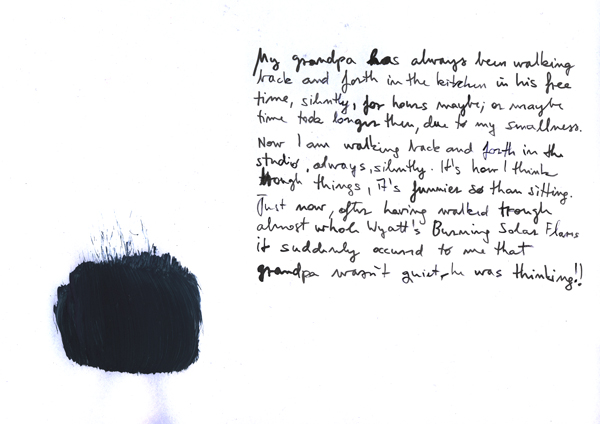 My grandpa has always been walking
back and forth in the kitchen in his free
time, silently, for hours maybe; or maybe
time took longer then, due to my smallness.
Now I am walking back and forth in the
studio, always, silently. It's how I think
trough things, it's funnier so than sitting.
Just now, after having walked trough
almost whole Wyatt's Burning Solar Flares
it suddenly occured to me that
grandpa wasn't quiet, he was thinking!!